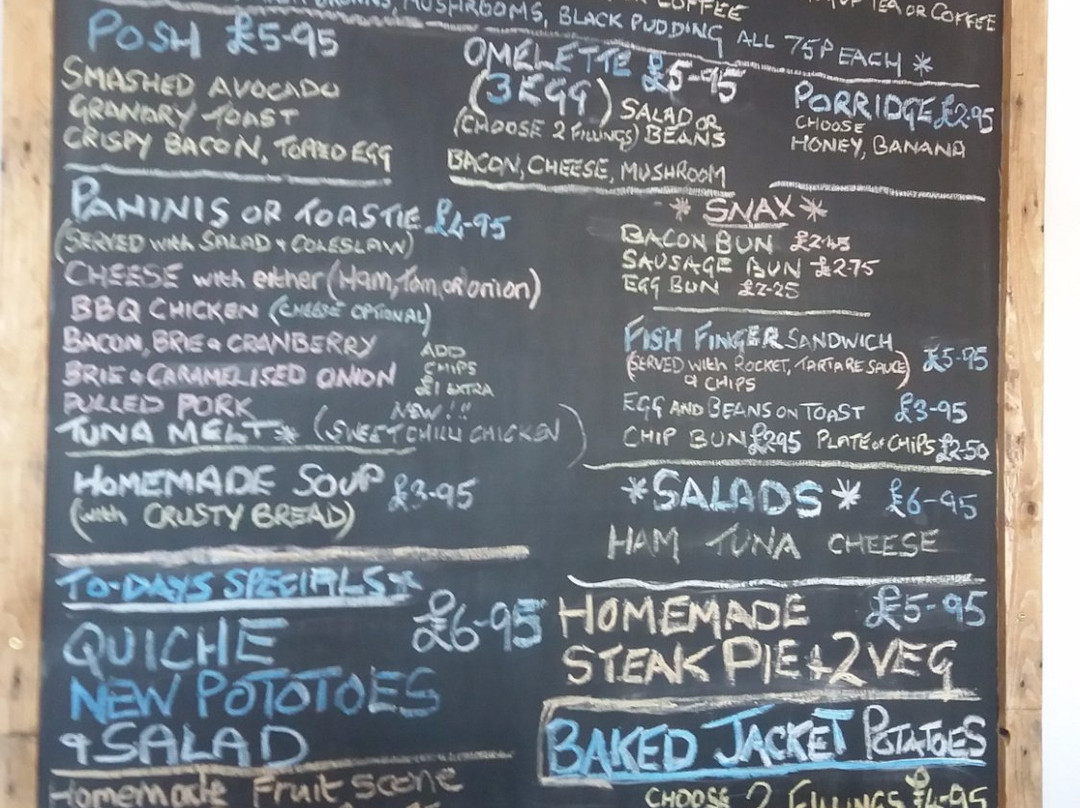 MUSHROOMS, BLACK PUDDING ALL 75P EACH *
COFFEE
TEA OR COFFEE
POSH £5-95
SMASHED AVOCADO
GRANARY TOAST
CRISPY BACON, TOPPED EGG
OMELETTE £5-95
(3 EGG) SALAD OR
(CHOOSE 2 FILLINGS) BEANS
BACON, CHEESE, MUSHROOM
PORRIDGE £2.95
CHOOSE
HONEY, BANANA
PANINIS OR TOASTIE £4-95
(SERVED with SALAD & COLESLAW)
CHEESE with either (Ham, Tom, or onion)
BBQ CHICKEN (CHEESE OPTIONAL)
BACON, BRIE & CRANBERRY
BRIE & CARAMELISED ONION
PULLED PORK
TUNA MELT * (SWEET CHILLI CHICKEN)
ADD
CHIPS
£1 EXTRA
NEW!!!
HOMEMADE SOUP £3-95
(with CRUSTY BREAD)
TO-DAYS SPECIALS *
QUICHE £6-95
NEW POTOTOES
& SALAD
Homemade Fruit Scone
* SNAX *
BACON BUN £2-45
SAUSAGE BUN £2-75
EGG BUN £2-25
FISH FINGER SANDWICH £5-95
(SERVED with ROCKET, TARTARE SAUCE)
& CHIPS
EGG AND BEANS ON TOAST £3-95
CHIP BUN £295 PLATE of CHIPS £2-50
* SALADS * £6-95
HAM TUNA CHEESE
HOMEMADE £5-95
STEAK PIE + 2 VEG
BAKED JACKET POTATOES
CHOOSE 2 FILLINGS £4-95